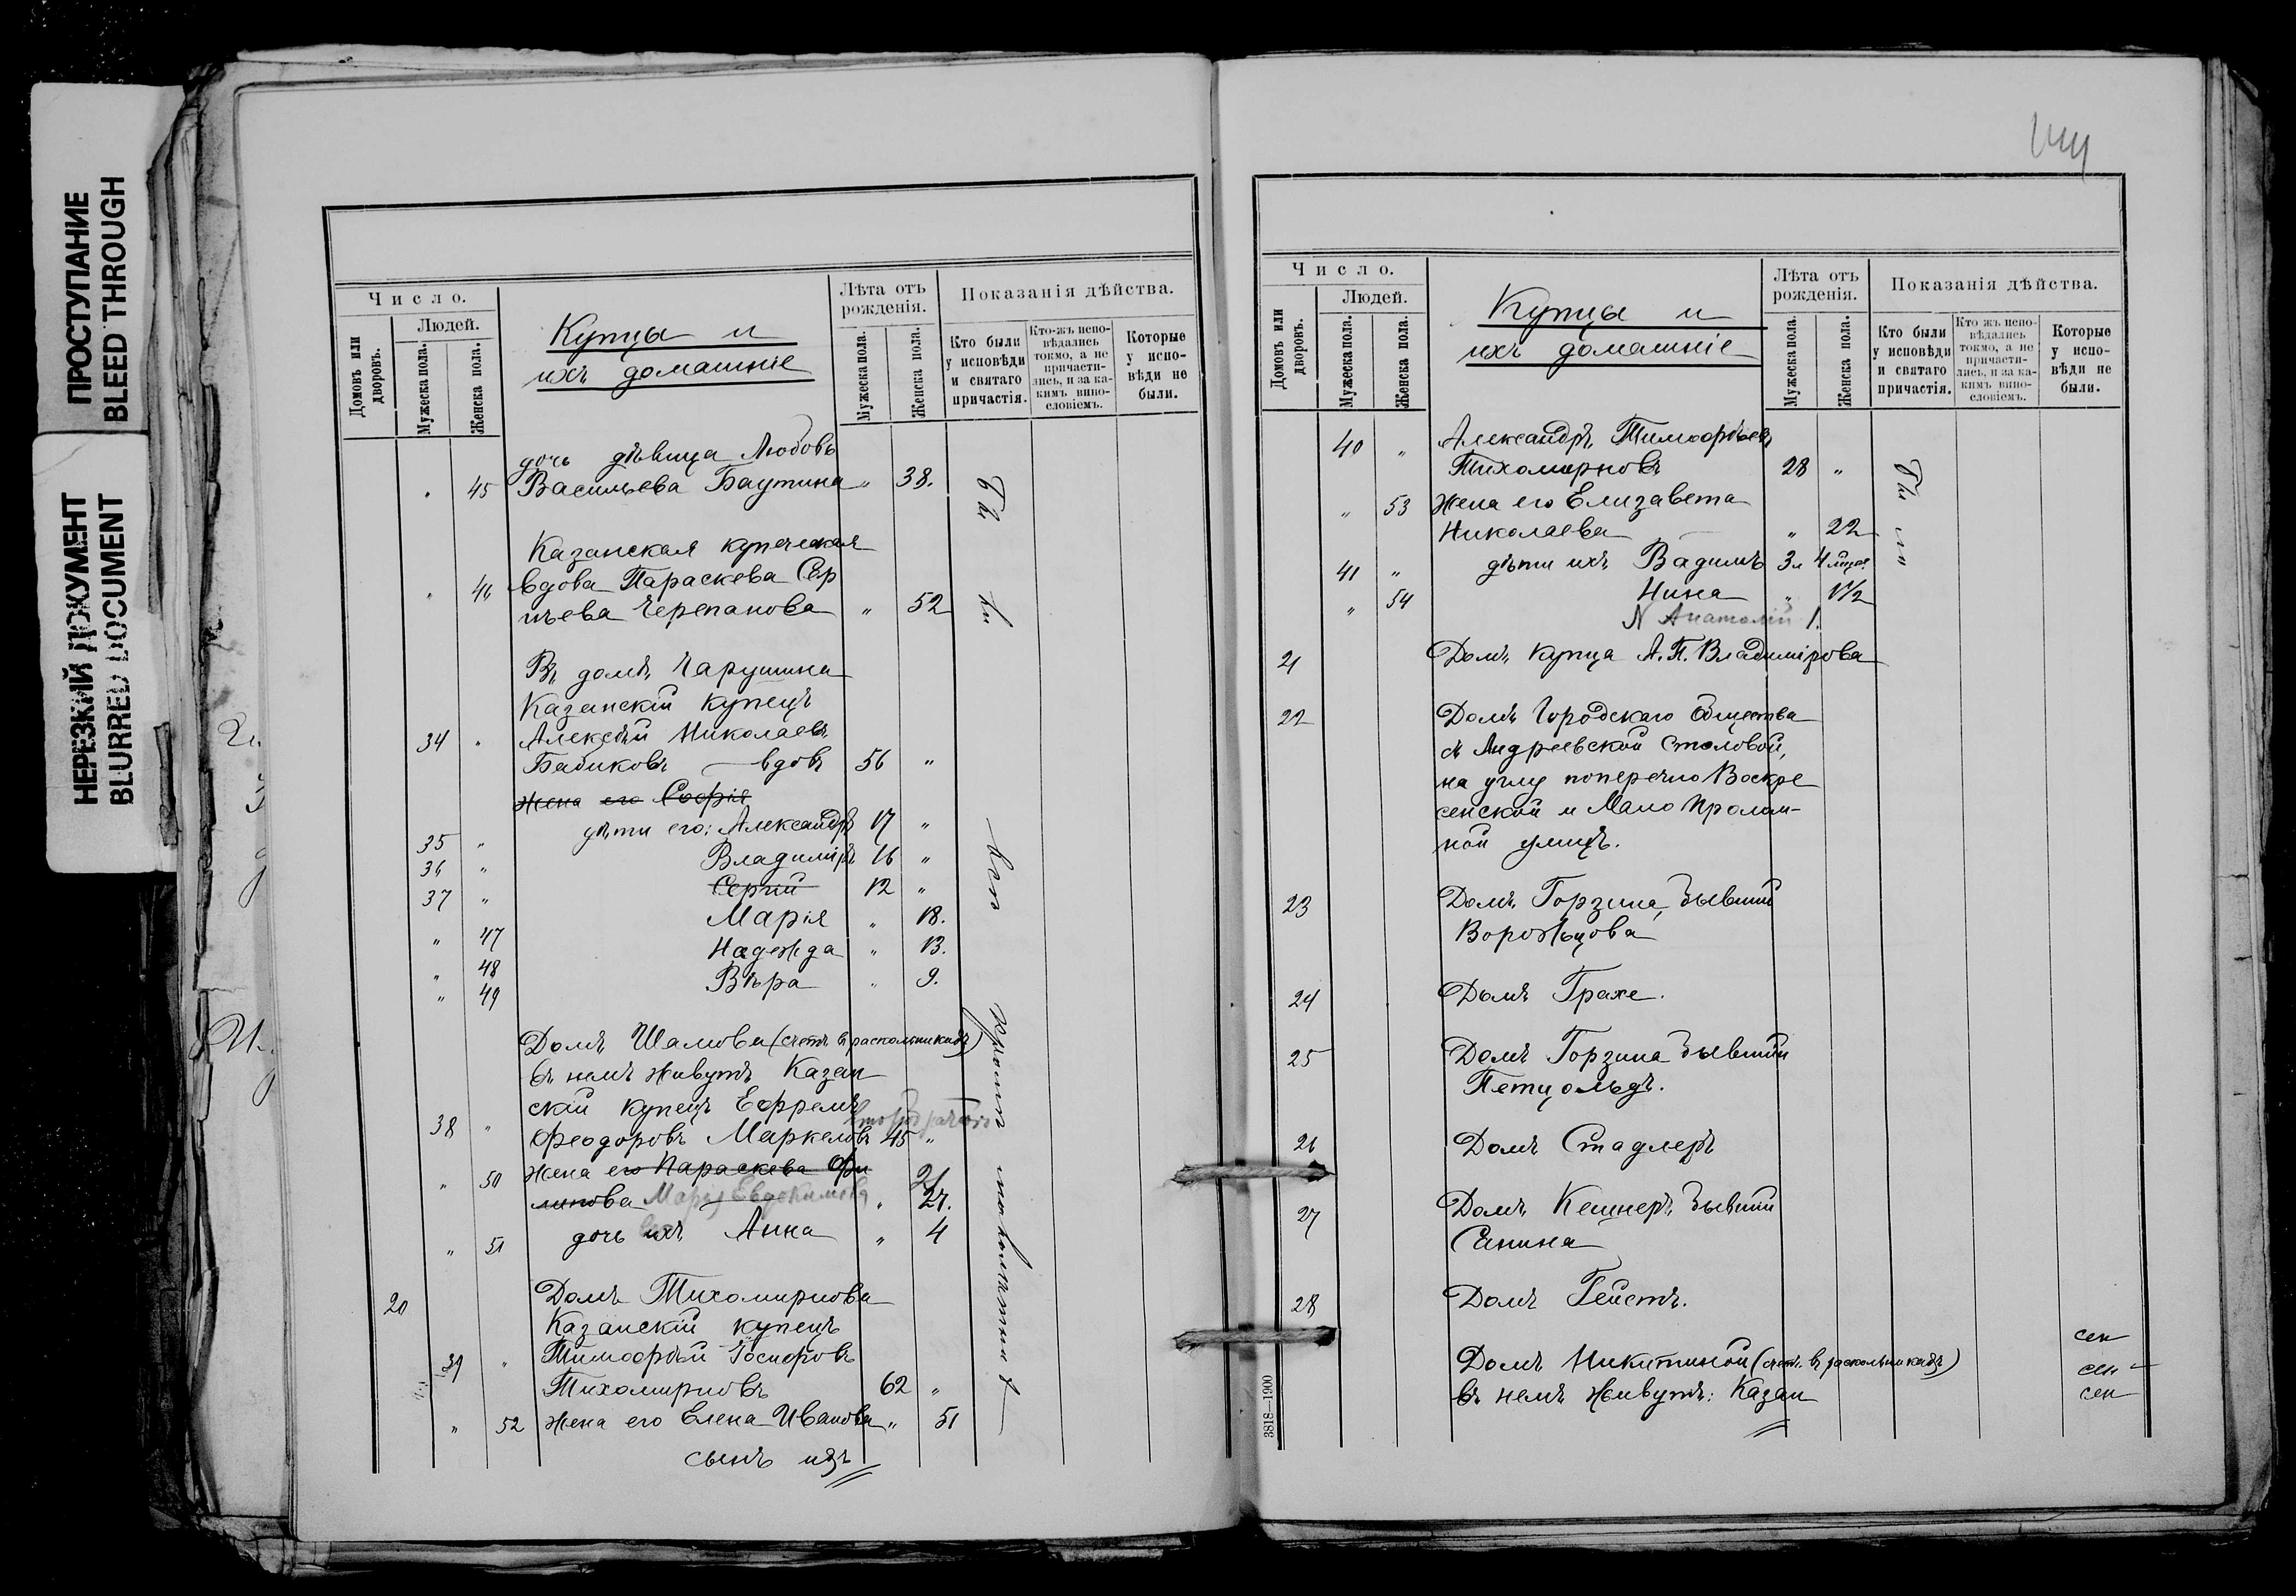 ПРОСТУПАНИЕ
BLEED THROUGH
НЕРЕЗКИЙ ДОКУМЕНТ
BLURRED DOCUMENT
Число.
Домовъ или дворовъ.
Людей.
Мужеска пола.
Женска пола.
Купцы и
ихъ домашніе
Лѣта отъ рожденія.
Мужеска пола.
Женска пола.
Показанія дѣйства.
Кто были у исповѣди и святаго причастія.
Кто-жъ исповѣдались токмо, а не причастились, и за какимъ винословіемъ.
Которые у исповѣди не были.
дочь дѣвица Любовь
" 45 Васильева Баутина " 38.
Казанская купеческая
" 46 вдова Параскева Сер
гѣева Черепанова " 52
Въ домѣ Чарушина
Казанскій купецъ
34 " Алексѣй Николаевъ
Бабиковъ — вдовъ 56 "
жена его Софія
35 " дѣти его: Александръ 17 "
36 " Владиміръ 16 "
37 " Сергій 12 "
" 47 Марія " 18.
" 48 Надежда " 13.
" 49 Вѣра " 9.
Домъ Шамова (счетъ въ раскольникахъ)
въ немъ живутъ Казан
скій купецъ Ефремъ
38 " Феодоровъ Маркеловъ 45 "
" 50 жена его Параскева Фи 21
липова Марія Евдокимова " 27.
" 51 дочь ихъ Анна " 4
20 Домъ Тихомирнова
Казанскій купецъ
39 " Тимофей Іосифовъ
Тихомирновъ 62 "
" 52 жена его Елена Иванова " 51
сынъ ихъ
Были
Число.
Домовъ или дворовъ.
Людей.
Мужеска пола.
Женска пола.
Купцы и
ихъ домашніе
Лѣта отъ рожденія.
Мужеска пола.
Женска пола.
Показанія дѣйства.
Кто были у исповѣди и святаго причастія.
Кто жъ исповѣдались токмо, а не причастились, и за какимъ винословіемъ.
Которые у исповѣди не были.
40 " Александръ Тимофѣевъ
Тихомирновъ 28 "
" 53 жена его Елизавета
Николаева " 22
41 " дѣти ихъ Вадимъ 3 л 4 мѣс.
" 54 Нина " 1½
N Анатолій 1.
21 Домъ купца А. П. Владимірова
22 Домъ Городскаго Общества
съ Андреевской столовой,
на углу поперечно Воскре
сенской и Мало Пролом-
ной улицъ.
23 Домъ Горзина, бывшій
Ворожцова
24 Домъ Грахе.
25 Домъ Горзина бывшій
Петцольдъ.
26 Домъ Стадлеръ
27 Домъ Кешнеръ бывшій
Санина
28 Домъ Гейстъ.
Домъ Никитиной (счет. въ раскольникахъ)
въ немъ живутъ: Казан
сен
сен
сен
3818—1900